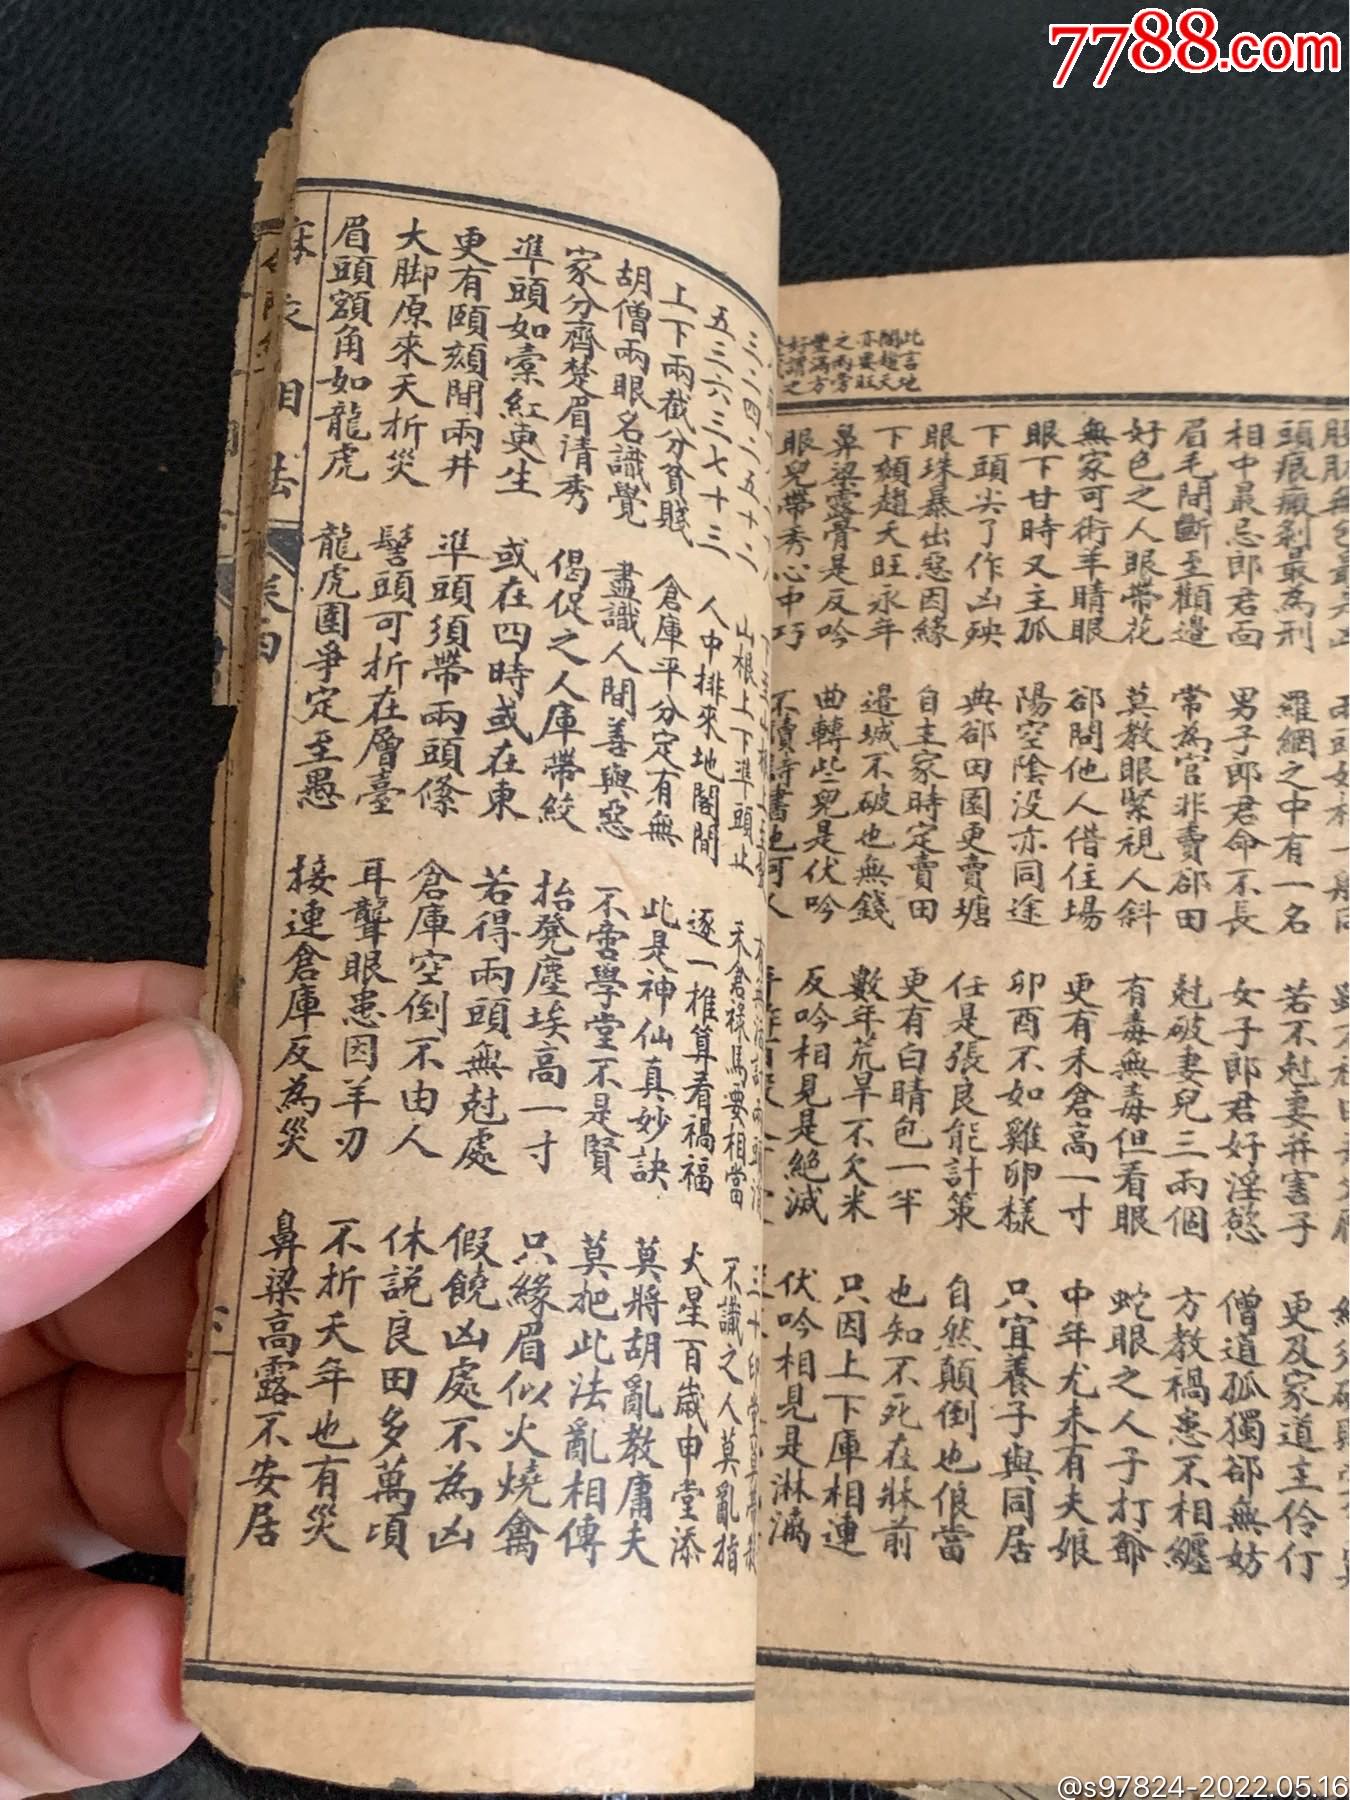 7788.com
此言地
閣趙天
亦要旺
之兩旁
豐滿方
好謂之
頭痕癥剩最為刑 羅網之中有一名 若不尅妻并害子 更及家道主伶仃
相中最忌郎君面 男子郎君命不長 女子郎君好淫慾 僧道孤獨郤無妨
眉毛間斷至顴邉 常為官非賣郤田 尅破妻兒三兩個 方教禍患不相纏
好色之人眼帶花 莫教眼緊視人斜 有毒無毒但看眼 蛇眼之人子打爺
無家可術羊睛眼 郤問他人借住場 更有禾倉高一寸 中年尤未有夫娘
眼下甘時又主孤 陽空陰没亦同途 卯酉不如雞卵樣 只宜養子與同居
下頭尖了作凶殃 典郤田園更賣塘 任是張良能計策 自然顛倒也俍當
眼珠暴出惡因緣 自主家時定賣田 更有白睛包一半 也知不死在牀前
下頦趙天旺永年 邉城不破也無錢 數年荒旱不欠米 只因上下庫相連
鼻梁露骨是反吟 曲轉些兒是伏吟 反吟相見是絕滅 伏吟相見是淋漓
眼兒帶秀心中巧 不讀詩書也可人
三二四二五十二 山根上下準頭止 禾倉禄馬要相當 不識之人莫亂指
五三六三七十三 人中排來地閣間 逐一推算看禍福 火星百歲申堂添
上下兩截分貧賤 倉庫平分定有無 此是神仙真妙訣 莫將胡亂教庸夫
胡僧兩眼名識覺 盡識人間善與惡 不啻學堂不是賢 莫把此法亂相傳
家分齊楚眉清秀 偈促之人庫帶絞 抬凳塵埃高一寸 只緣眉似火燒禽
準頭如棗紅更生 或在四時或在東 若得兩頭無尅處 假饒凶處不為凶
更有頤頦間兩井 準頭須帶兩頭絛 倉庫空倒不由人 休説良田多萬頃
大脚原來夭折災 髻頭可折在層臺 耳聾眼患因羊刃 不折夭年也有災
眉頭額角如龍虎 龍虎圍爭定至愚 接連倉庫反為災 鼻梁高露不安居
麻衣相法
@s97824-2022.05.16